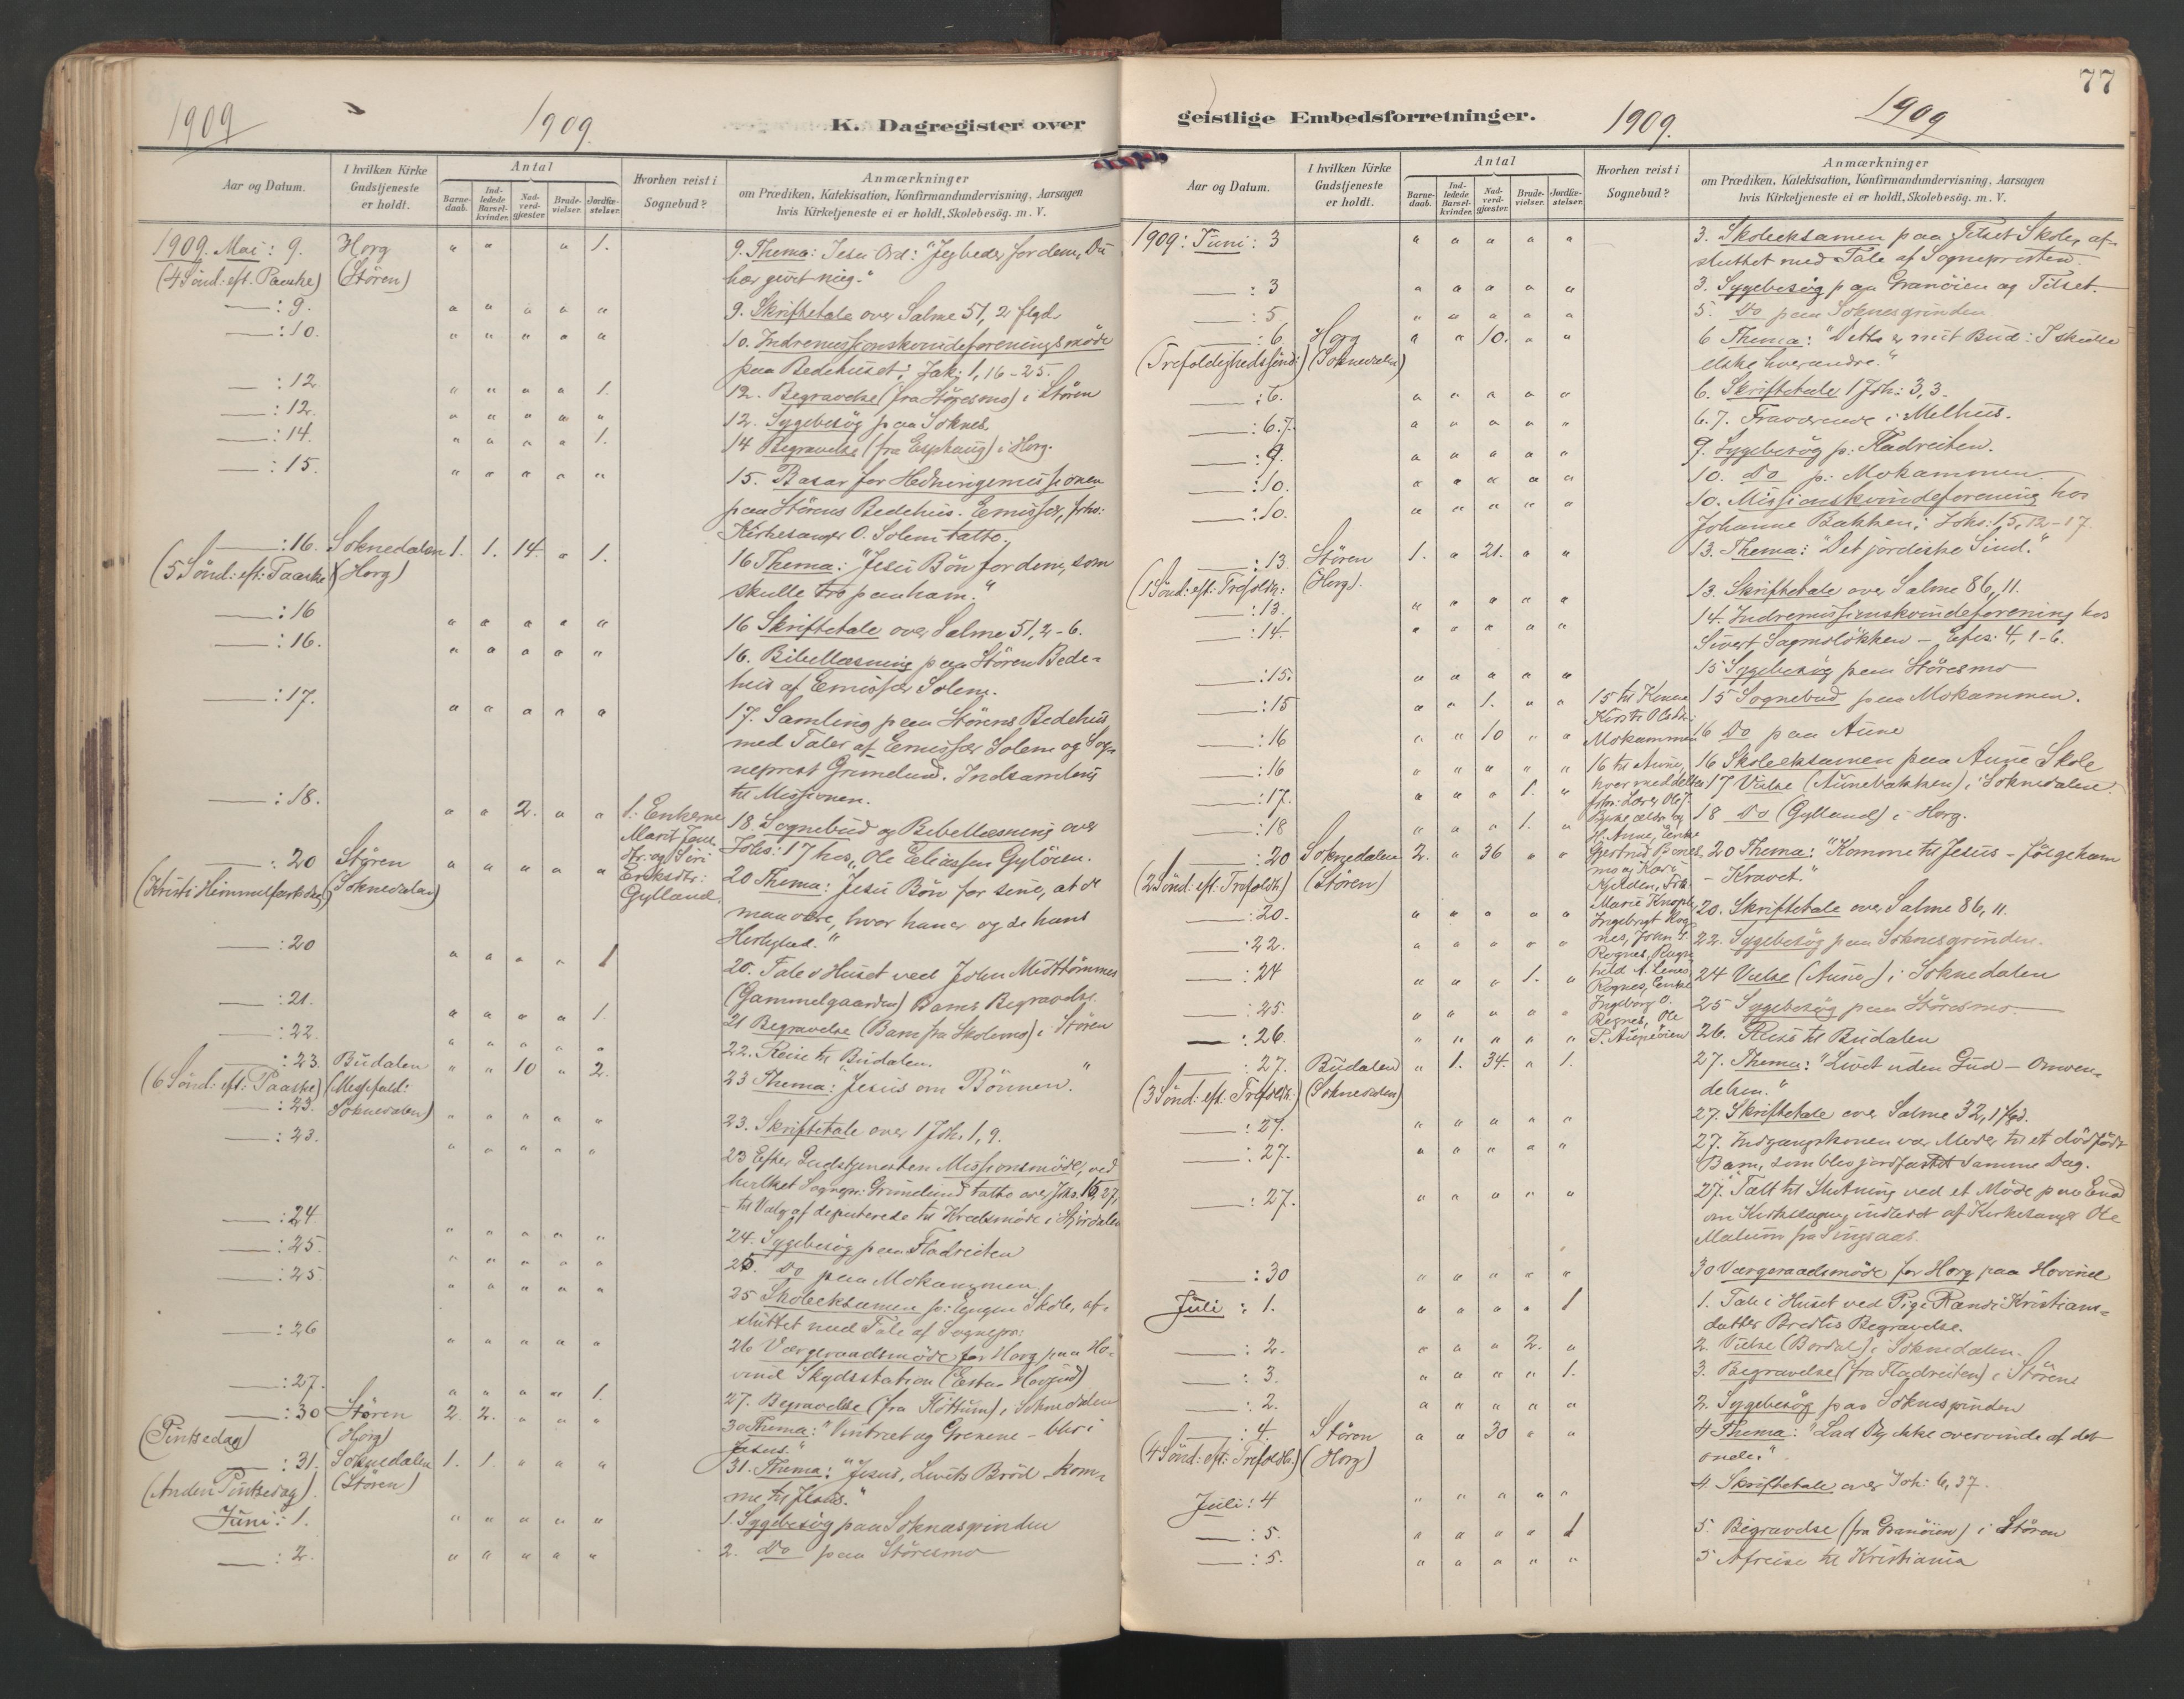 1909
1909.
K. Dagregister over
Aar og Datum.
I hvilken Kirke Gudstjeneste er holdt.
Antal
Barnedaab.
Indledede Barselkvinder.
Nadverdgjæster.
Brudevielser.
Jordfæstelser.
Hvorhen reist i Sognebud?
Anmærkninger
om Prædiken, Katekisation, Konfirmandundervisning, Aarsagen
hvis Kirketjeneste ei er holdt, Skolebesög. m. V.
1909. Mai: 9. Horg " " " 1. 9. Thema: Jesu Ord: "Jeg beder for dem, Du
(4 Sönd: eft. Paaske) (Stören) har givet mig."
— : 9. " " " " " 9. Skriftetale over Salme 51, 2 flgd.
— : 10. " " " " " 10. Indremissionskvindeforeningsmöde
paa Bedehuset; Jak: 1, 16-25.
— : 12 " " " " 1. 12. Begravelse (fra Störesmo) i Stören
— : 12. " " " " " 12. Sygebesög paa Soknes.
— : 14. " " " " 1. 14 Begravelse (fra Esphaug) i Horg.
— : 15. " " " " " 15. Basar for Hedningemissionen
paa Störens Bedehus. Emissær, fhv:
Kirkesanger O. Solem talte.
— : 16. Soknedalen 1. 1. 14. " 1. 16 Thema: "Jesu Bön for dem, som
(5 Sönd: eft: Paaske) (Horg) skulle tro paa ham."
— : 16 " " " " " 16 Skriftetale over Salme 51, 2-6.
— : 16. " " " " " 16. Bibellæsning paa Stören Bede-
hus af Emissær Solem.
— : 17. " " " " " 17. Samling paa Störens Bedehus
med Taler af Emissær Solem og Sog-
neprest Grimelund. Indsamling
til Missionen.
— : 18. " " 2. " " 1. Enkerne 18. Sognebud og Bibellæsning over
Marit Jens- Johs: 17 hos Ole Eliassen Gylöien.
dtr. og Siri
Eriksdtr:
Gylland.
— : 20 Stören " " " " " 20 Thema: Jesu Bön for sine, at de
(Kristi Himmelfartsdag) (Soknedalen) maa være, hvor han er og se hans
Herlighed."
— : 20 " " " " 1 20. Tale i Huset ved John Midttömmes
(Gammelgaarden) Barns Begravelse.
— : 21. " " " " 1. 21 Begravelse (Barn fra Skolmo) i Stören
— : 22. " " " " " 22. Reise til Budalen.
— : 23. Budalen " " 10 " 2. 23 Thema: "Jesus om Bönnen."
(6 Sönd: eft: Paaske) (Messfald:
— : 23. Soknedalen) " " " " " 23. Skriftetale over 1 Joh. 1, 9.
— : 23. " " " " " 23 Efter Gudstjenesten Missionsmöde, ved
hvilket Sognepr: Grimelund talte over Johs. 15, 27,
- til Valg af deputerede til Kredsmöde i Stjördalen
— : 24. " " " " " 24. Sygebesög paa Fladreiten
— : 25. " " " " " 25. Do paa Mokammen.
— : 25 " " " " " 25 Skoleeksamen p: Engen Skole, af-
sluttet med Tale af Sognepr:
— : 26 " " " " " 26 Værgeraadsmöde for Horg paa Ho-
vind Skydsstation
— : 27. " " " " 1. 27. Begravelse (fra Flöttum) i Soknedalen
— : 30 Stören 2. 2. " " " 30 Thema: "Vintræet og Grenene - bliv i
(Pintsedag) (Horg) Jesus."
— : 31. Soknedalen 1. 1. " " " 31. Thema: "Jesus, Livets Bröd - kom-
(Anden Pintsedag). (Stören) me til Jesus."
Juni: 1. " " " " " 1. Sygebesög paa Soknesgrinden
— : 2. " " " " " 2. Do paa Störesmo
77
geistlige Embedsforretninger.
1909.
1909
Aar og Datum.
I hvilken Kirke Gudstjeneste er holdt.
Antal
Barnedaab.
Indledede Barselkvinder.
Nadverdgjæster.
Brudevielser.
Jordfæstelser.
Hvorhen reist i Sognebud?
Anmærkninger
om Prædiken, Katekisation, Konfirmandundervisning, Aarsagen
hvis Kirketjeneste ei er holdt, Skolebesög. m. V.
1909: Juni: 3 " " " " " 3. Skoleeksamen paa Tilset Skole, af-
sluttet med Tale af Sognepresten.
— : 3 " " " " " 3. Sygebesög paa Granöien og Tilset.
— : 5. " " " " " 5. Do paa Soknesgrinden
— : 6. Horg " " 10. " " 6 Thema: "Dette er mit Bud: I skulle
(Trefoldighedssönd:) (Soknedalen) elske hverandre."
— : 6. " " " " " 6. Skriftetale 1 Joh: 3, 3.
— : 6.7. " " " " " 6.7. Fraværende i Melhus.
— : 9. " " " " " 9. Sygebesög p: Fladreiten.
— : 10. " " " " " 10. Do p: Mokammen
— : 10. " " " " " 10. Missionskvindeforening hos
Johanne Bakken; Johs: 15, 12-17.
— : 13 Stören 1. " 21. " " 13. Thema: "Det jordiske Sind."
(1 Sönd: eft: Trefoldh: (Horg).
— : 13. " " " " " 13. Skriftetale over Salme 86, 11.
— : 14. " " " " " 14. Indremissionskvindeforening hos
Sivert Sagmolökken - Efes: 4, 1-6.
— : 15. " " " " " 15 Sygebesög paa Störesmo
— : 15 " " 1. " " 15 til Kone 15 Sognebud paa Mokammen.
Kirsti Olsdtr:
— : 16 " " 10 " " Mokammen 16 Do paa Aune
— : 16 " " " " " 16 til Aune, 16 Skoleeksamen paa Aune Skole
— : 17. " " " 1. " hvor meddeltes 17 Vielse (Aunebakken) i Soknedalen.
— : 18 " " " 1. " 18 Do (Gylland) i Horg.
H. Aune, Enke
— : 20 Soknedalen 2. " 36 " " 20 Thema: "Komme til Jesus - fölge ham
(2 Sönd: eft: Trefoldh.) (Stören) mo og Kari - Kravet."
— : 20. " " " " " Marie Knoph, 20. Skriftetale over Salme 86, 11.
Ingebrigt Rog-
— : 22. " " " " " nes, John 22. Sygebesög paa Soknesgrinden.
Rognes,
— : 24 " " " 1. " 24 Vielse (Aune) i Soknedalen
Rognes, Enke
— : 25. " " " " " Ingeborg O. 25 Sygebesög paa Störesmo.
Rognes, Ole
— : 26. " " " " " P. Auneöien 26. Reise til Budalen
— : 27. Budalen " 1. 34. " 1. 27. Thema: "Livet uden Gud - Omven-
(3 Sönd: eft. Trefoldh.) (Soknedalen) delsen."
— : 27. " " " " " 27. Skriftetale over Salme 32, 1 flgd.
— : 27. " " " " " 27. Indgangskonen var Moder til et dödfödt
Barn, som blev jordfæstet samme Dag.
— : 27. " " " " " 27. Talt til Slutning ved et Möde paa Enod
om Kirkesagen, indledet af Kirkesanger Ole
Malum fra Singsaas.
— : 30 " " " " " 30 Værgeraadsmöde for Horg paa Hovind
Juli: 1. " " " " 1 1. Tale i Huset ved Pige Randi Kristians-
datter Bredlis Begravelse.
— : 2. " " " 2. " 2. Vielse (Bordal) i Soknedalen.
— : 3. " " " " 1. 3. Begravelse (fra Fladreiten) i Stören
— : 2. " " " " " 2. Sygebesög paa Soknesgrinden
— : 4. Stören " " 30 " " 4 Thema: "Lad Dig ikke overvinde af det
(4 Sönd: eft: Trefoldh.) (Horg) onde."
Juli: 4 " " " " " 4. Skriftetale over Joh: 6, 37.
— : 5. " " " " 1 5. Begravelse (fra Granöien) i Stören
— : 5. " " " " " 5 Afreise til Kristiania